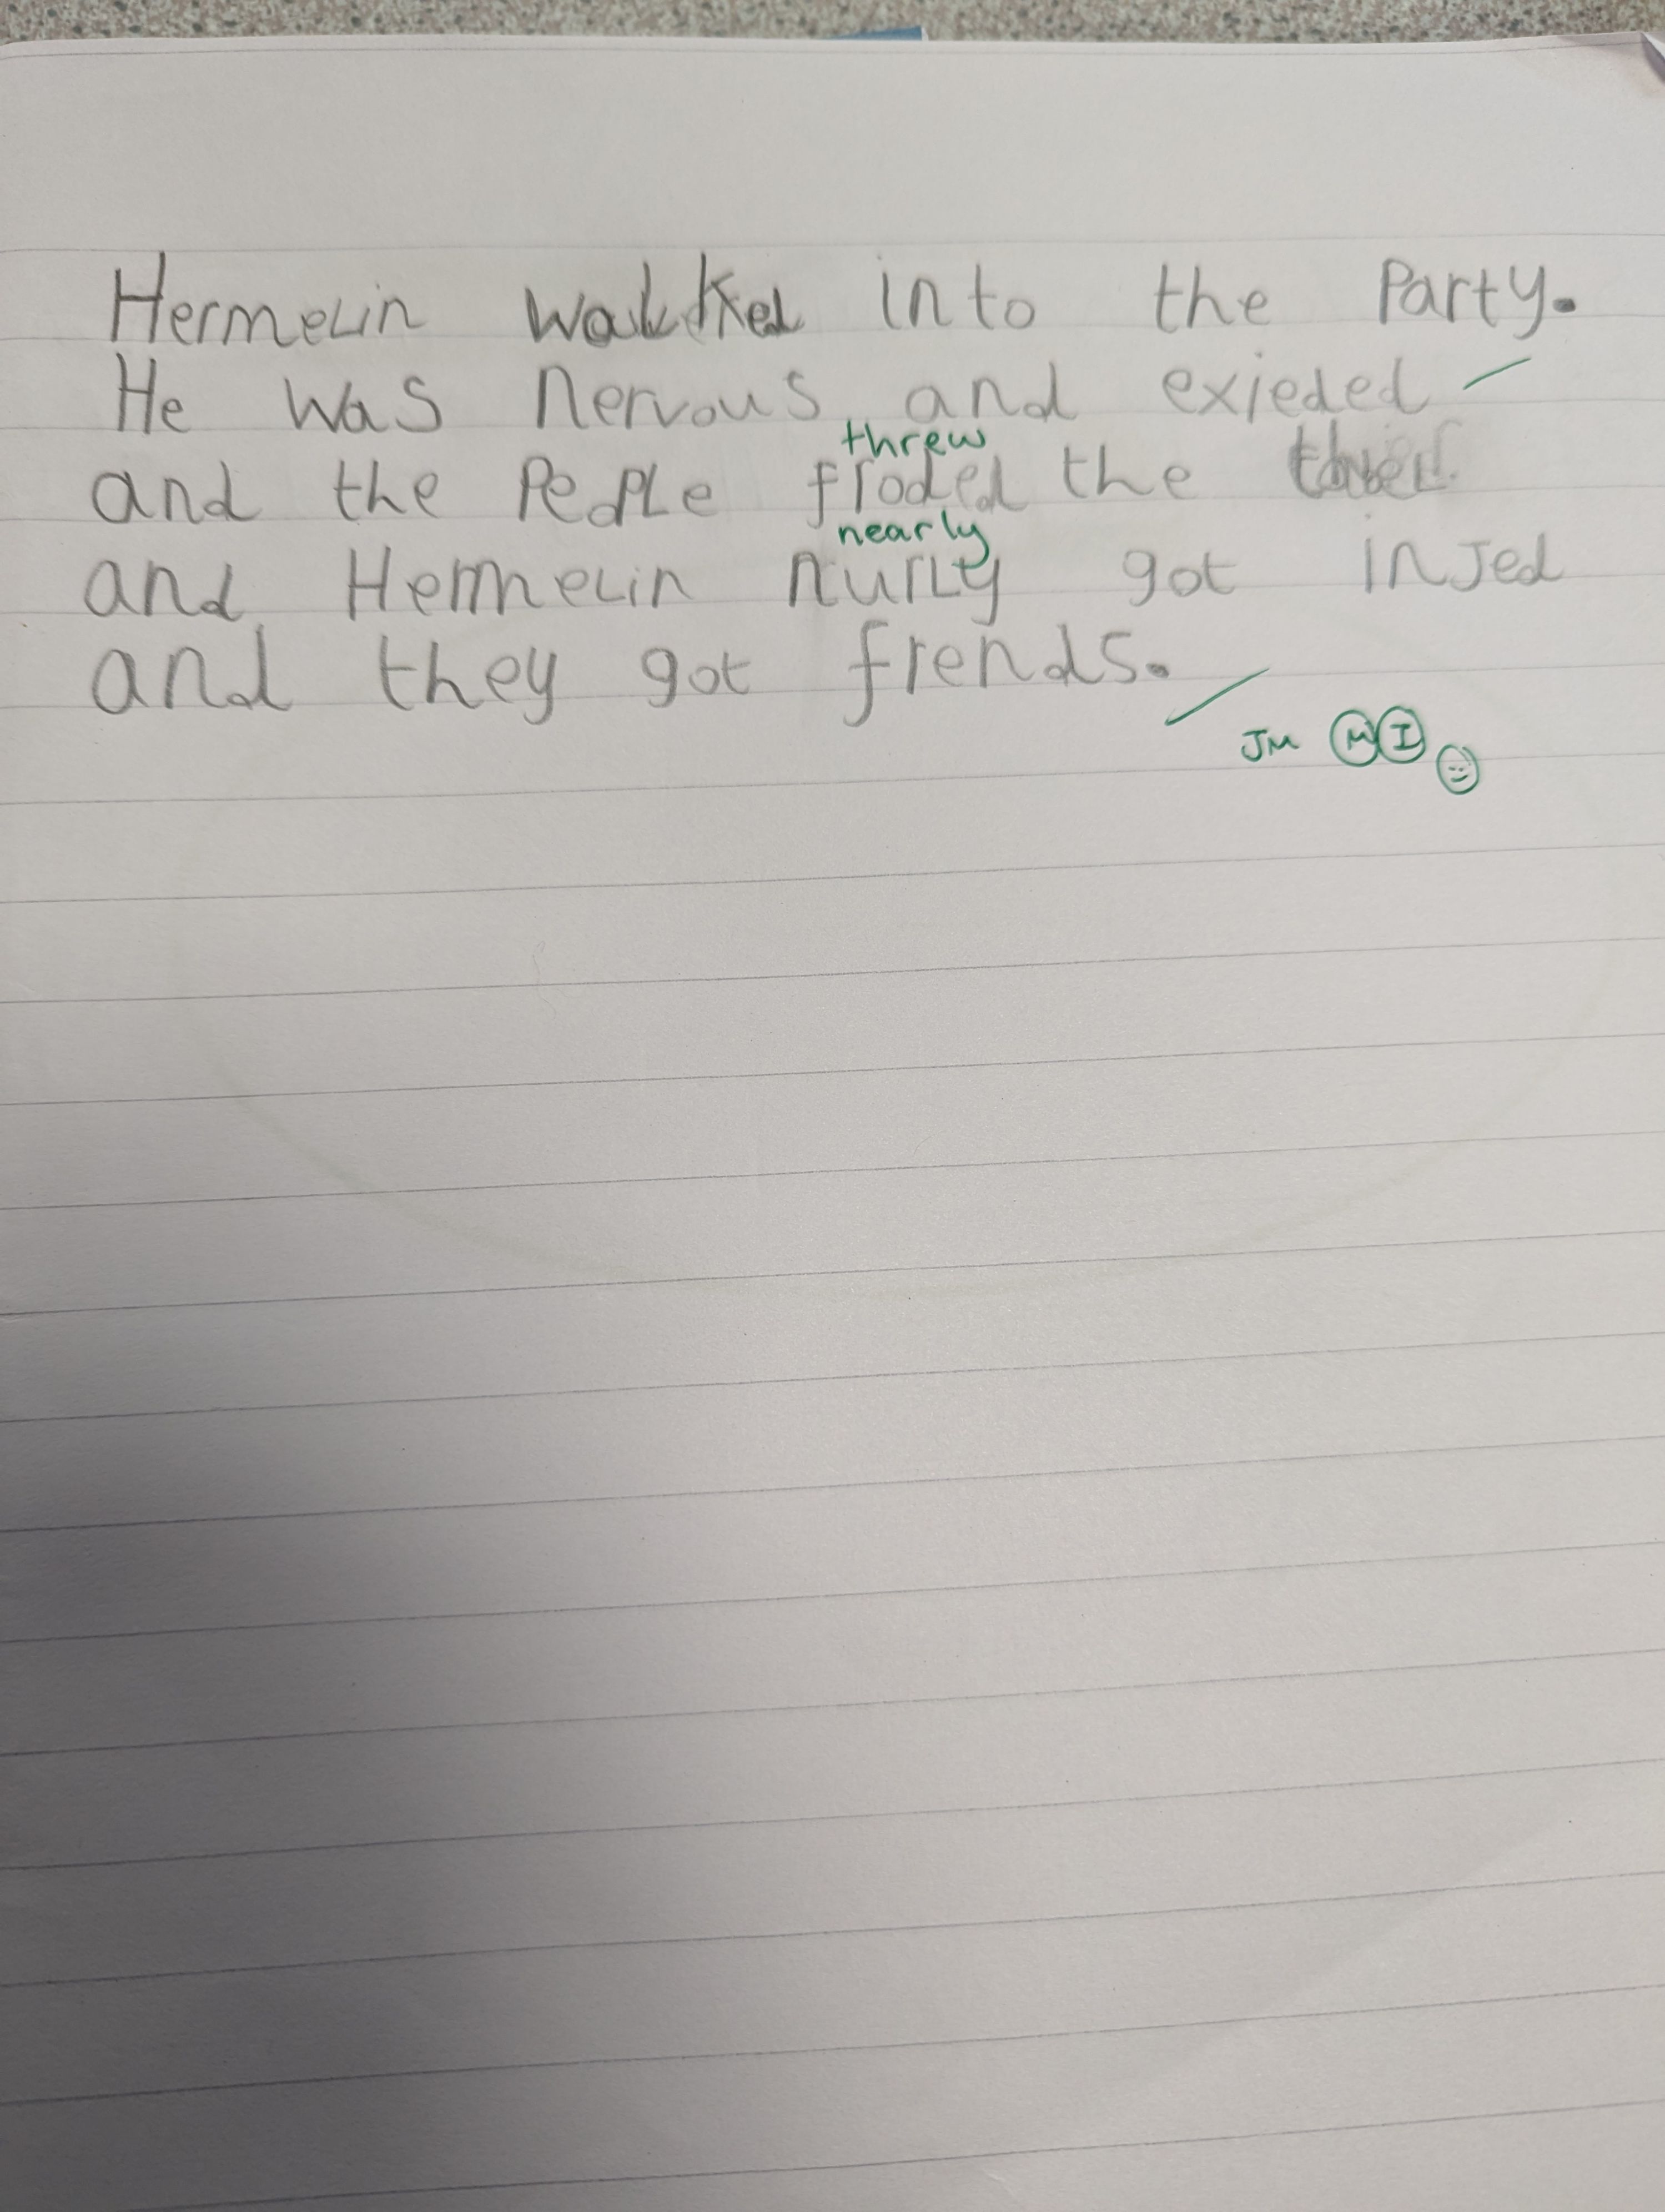 Hermelin walked into the Party.
He was nervous and exieded
threw
and the PeoPle froded the
nearly
and Hermelin nurly got injed
and they got frends.
JM M I